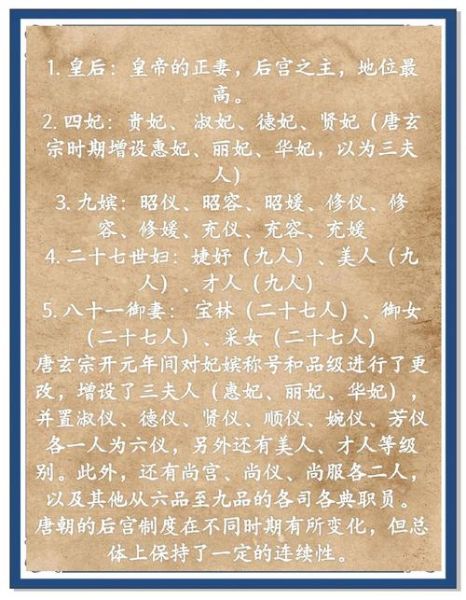 1. 皇后：皇帝的正妻，后宫之主，地位最
高。
2. 四妃：贵妃、淑妃、德妃、贤妃（唐玄
宗时期增设惠妃、丽妃、华妃，以为三夫
人）
3. 九嫔：昭仪、昭容、昭媛、修仪、修
容、修媛、充仪、充容、充媛
4. 二十七世妇：婕妤（九人）、美人（九
人）、才人（九人）
5. 八十一御妻： 宝林（二十七人）、御女
（二十七人）、采女（二十七人）
唐玄宗开元年间对妃嫔称号和品级进行了更
改，增设了三夫人（惠妃、丽妃、华妃），
并置淑仪、德仪、贤仪、顺仪、婉仪、芳仪
各一人为六仪，另外还有美人、才人等级
别。此外，还有尚宫、尚仪、尚服各二人，
以及其他从六品至九品的各司各典职员。
唐朝的后宫制度在不同时期有所变化，但总
体上保持了一定的连续性。